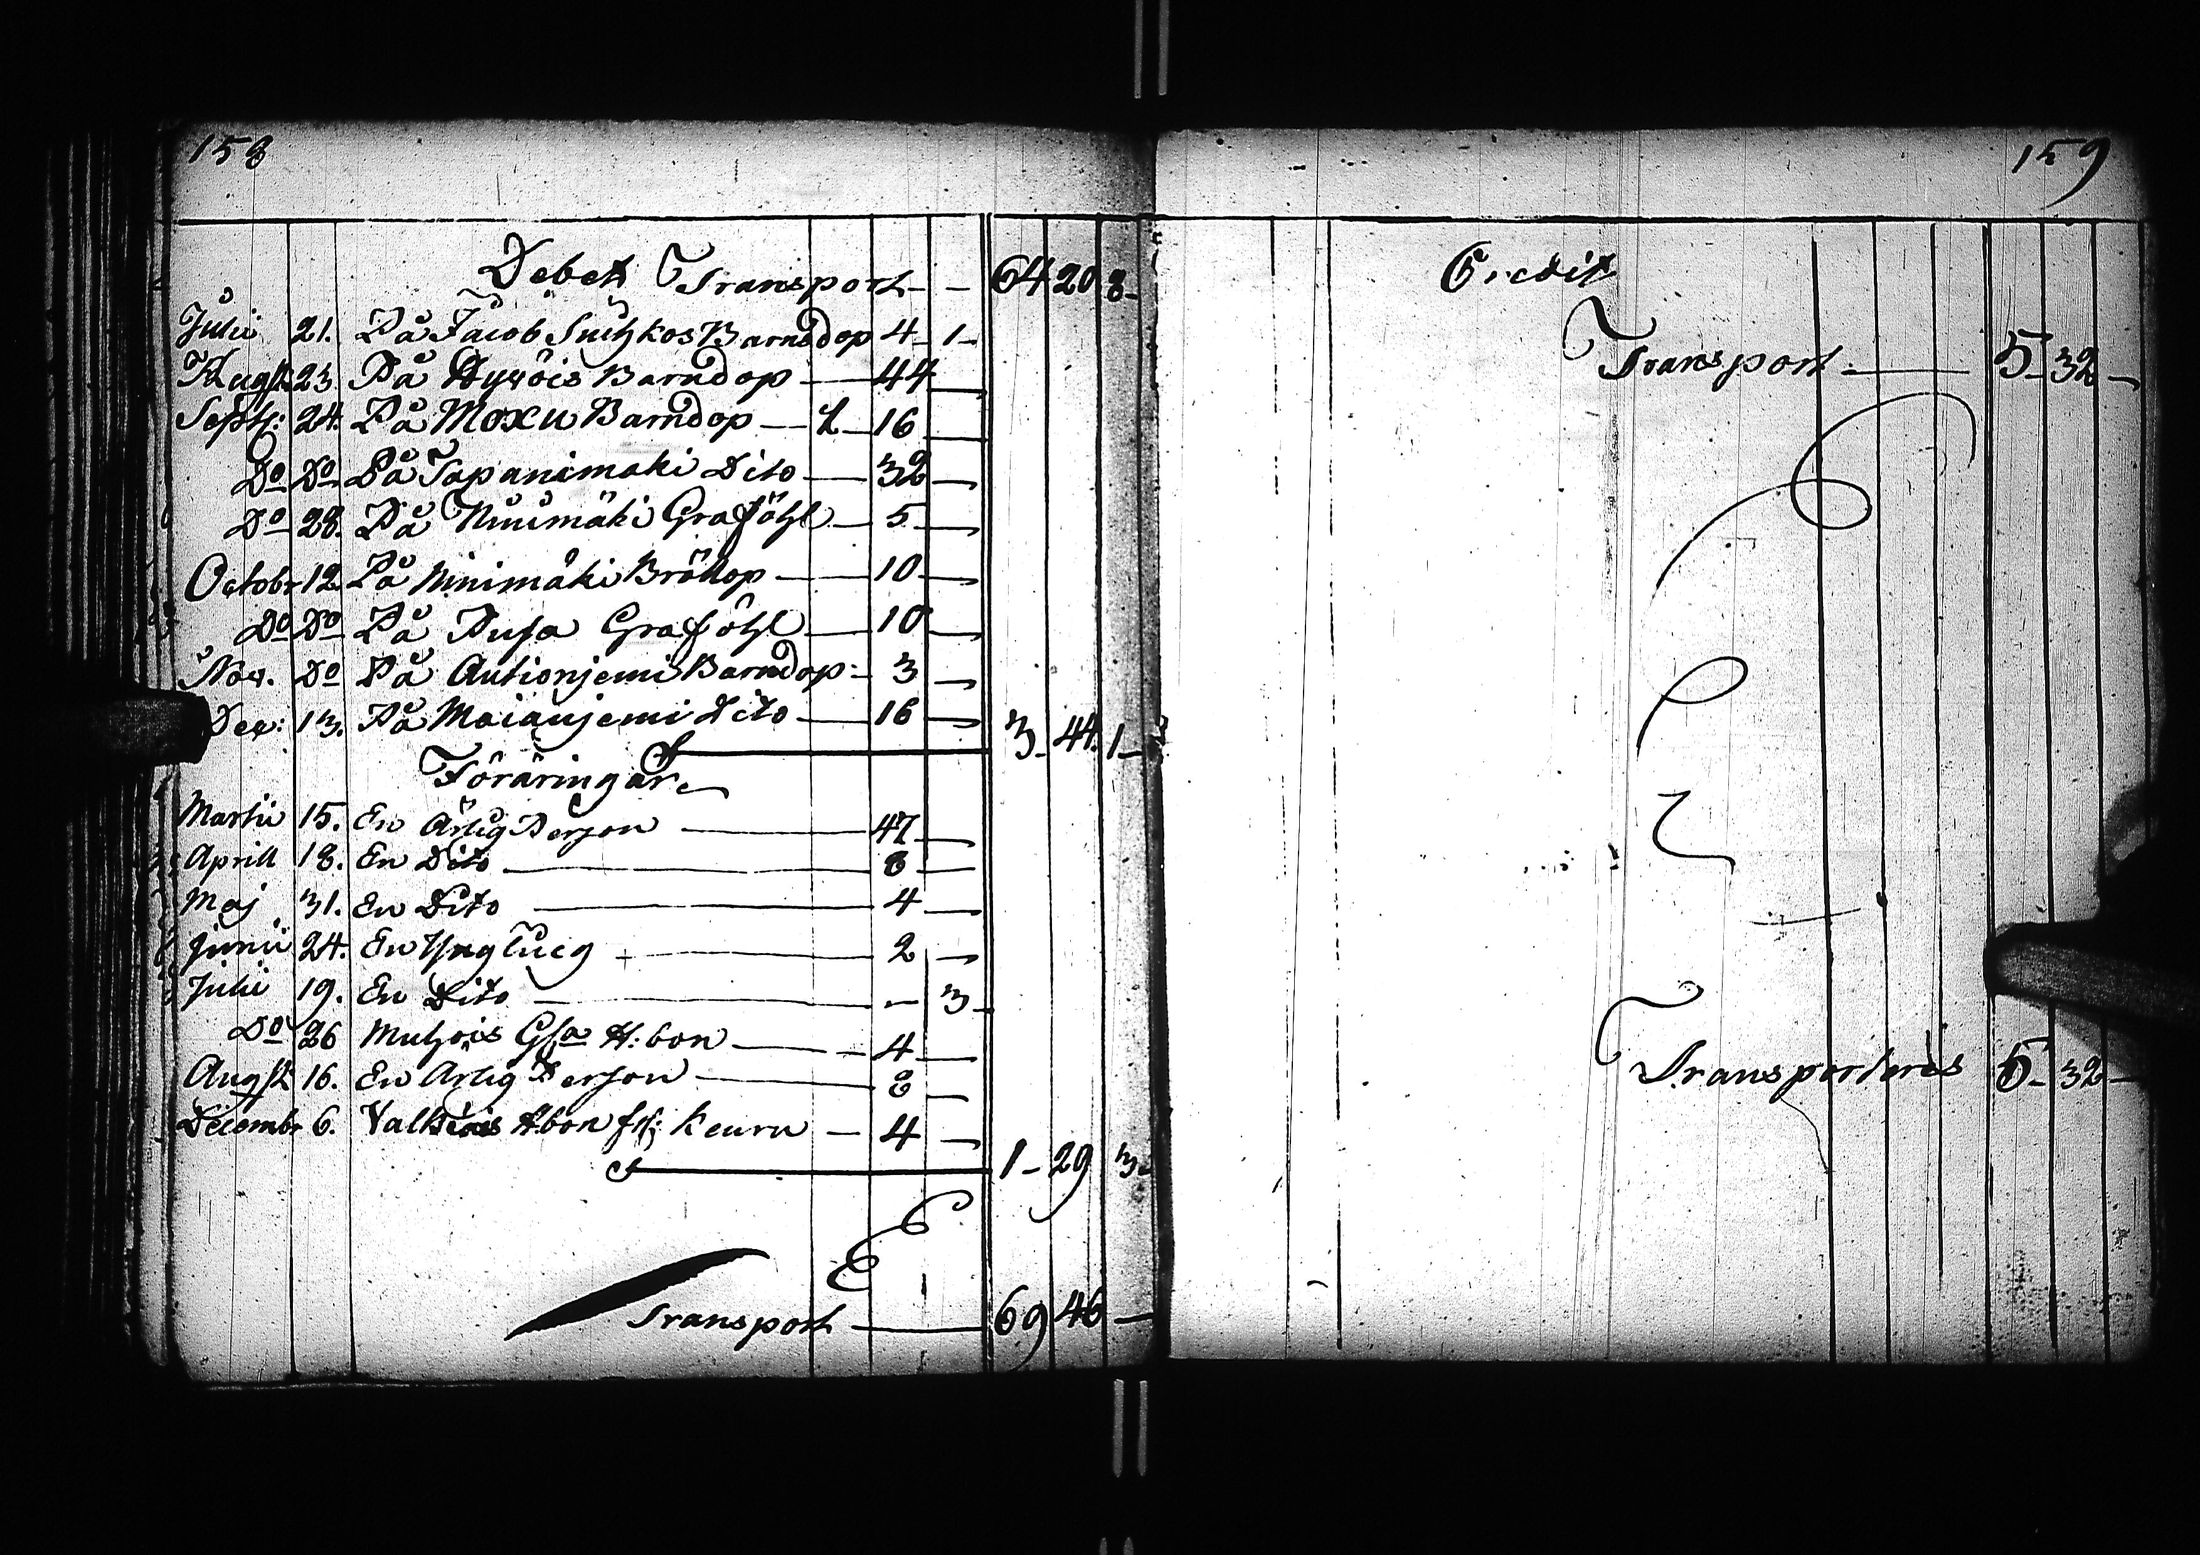 158
Debet Transport - - 64 20 8 -
Julii 21. På Jacob Suthkos Barndop 4 - 1 -
Augst 23 På Hyröis Barndop — 44 —
Septr: 24. På Moxu Barndop — 1 — 16 —
Do Do På Tapanimäki Dito — 32 —
Do 28. På Niiimäki Graföhl — 5 —
Octobr 12 På Ninimäki Bröllop — 10 —
Do Do På Pusa Graföhl — 10 —
Nov. Do På Autionjemi Barndop - 3 —
Dec: 13. På Maianjemi Dito — 16 —
3 - 44. 1 -
Föräringar
Martii 15. En Ärlig Person — 47 —
Aprill 18. En Dito — 8 —
Maj 31. En Dito — 4 —
Junii 24. En Ynglueg — 2 —
Julii 19. En Dito — - 3 -
Do 26 Mutjois H: bon — 4 —
Augst 16. En Ärlig Person — 8 —
Decembr 6. Valkiois Abon fr: Keuru — 4 —
1 - 29 3 -
Transport — 69 46 —
159
Credit
Transport — 5 - 32 —
Transporteres 5 - 32 —